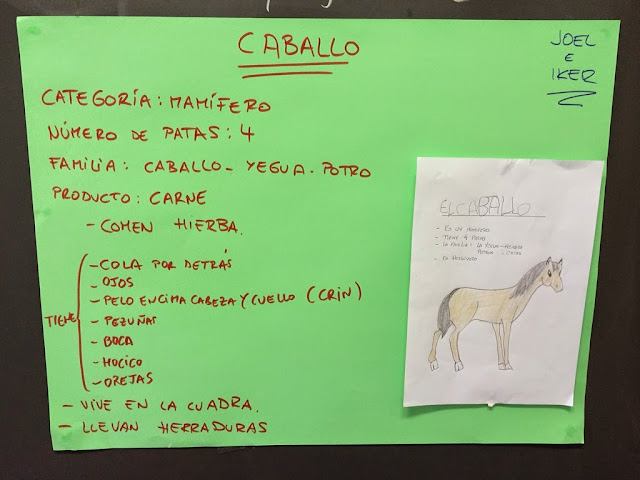 CABALLO
JOEL
E
IKER
CATEGORÍA: MAMÍFERO
NÚMERO DE PATAS: 4
FAMILIA: CABALLO - YEGUA - POTRO
PRODUCTO: CARNE
- COMEN HIERBA.
TIENE
- COLA POR DETRÁS
- OJOS
- PELO ENCIMA CABEZA Y CUELLO (CRIN)
- PEZUÑAS
- BOCA
- HOCICO
- OREJAS
- VIVE EN LA CUADRA.
- LLEVAN HERRADURAS
EL CABALLO
- ES UN
- TIENE 4 PATAS
- LA FAMILIA: LA YEGUA - HEMBRA
POTRO :
- ES